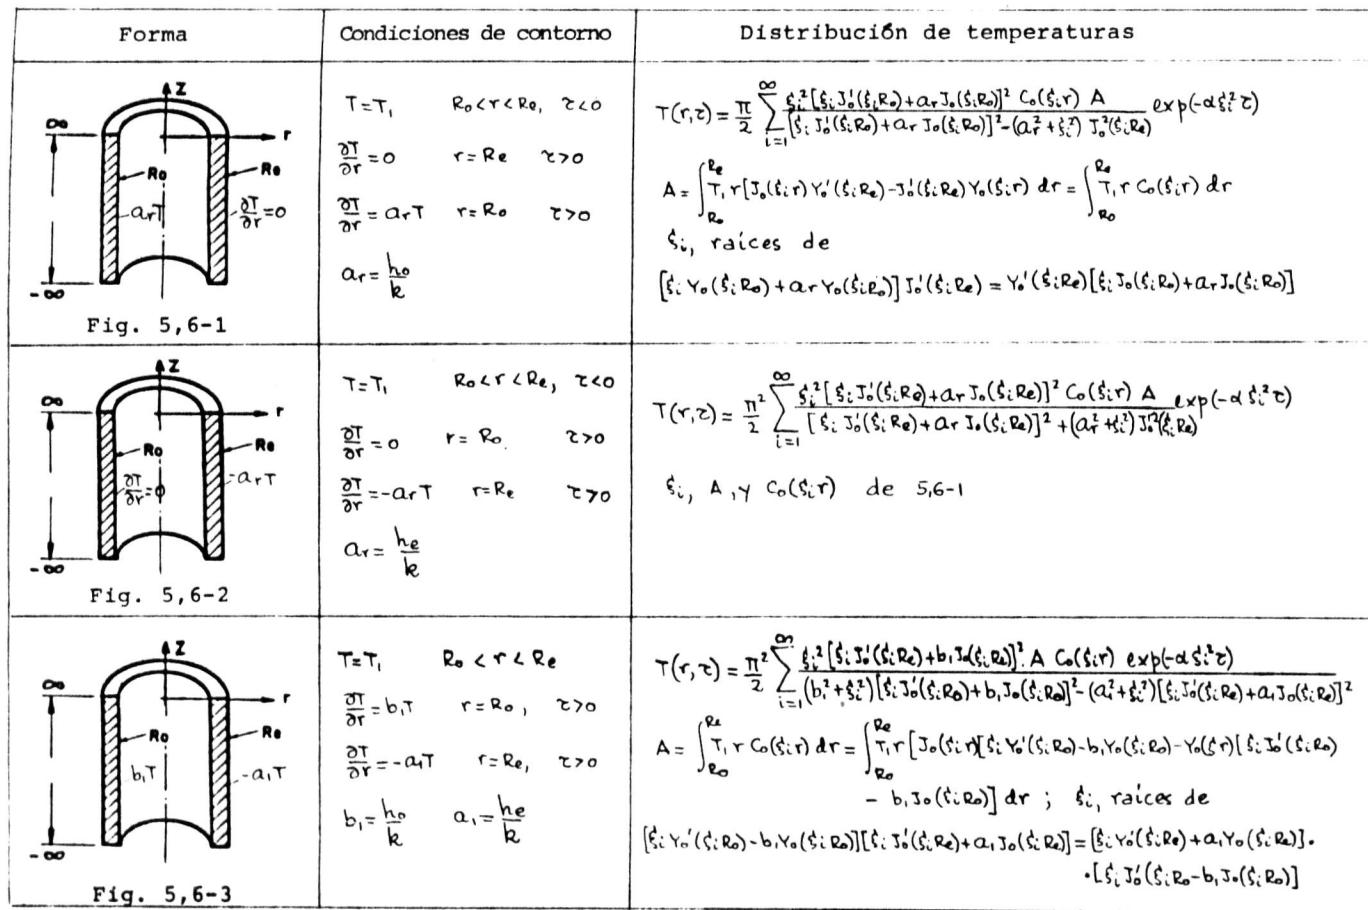 Forma
Condiciones de contorno
Distribución de temperaturas
Z
∞
r
Ro
Re
arT
∂T/∂r=0
-∞
Fig. 5,6-1
T=T₁ Ro<r<Re, τ<0
∂T/∂r=0 r=Re τ>0
∂T/∂r=arT r=Ro τ>0
ar=ho/k
T(r,τ)=π/2 ∑_{i=1}^{∞} ξi²[ξi Jo'(ξiRo)+ar Jo(ξiRo)]² Co(ξir) A / [ξi Jo'(ξiRo)+ar Jo(ξiRo)]²-(ar²+ξi²) Jo²(ξiRe) exp(-αξi²τ)
A=∫_{Ro}^{Re} T₁ r[Jo(ξir)Yo'(ξiRe)-Jo'(ξiRe)Yo(ξir) dr=∫_{Ro}^{Re} T₁ r Co(ξir) dr
ξi, raíces de
[ξi Yo(ξiRo)+ar Yo(ξiRo)] Jo'(ξiRe)=Yo'(ξiRe)[ξi Jo(ξiRo)+ar Jo(ξiRo)]
Z
∞
r
Ro
Re
∂T/∂r=0
-arT
-∞
Fig. 5,6-2
T=T₁ Ro<r<Re, τ<0
∂T/∂r=0 r=Ro. τ>0
∂T/∂r=-arT r=Re τ>0
ar=he/k
T(r,τ)=π²/2 ∑_{i=1}^{∞} ξi²[ξi Jo'(ξiRe)+ar Jo(ξiRe)]² Co(ξir) A / [ξi Jo'(ξiRe)+ar Jo(ξiRe)]²+(ar²+ξi²) Jo'²(ξiRe) exp(-αξi²τ)
ξi, A, y Co(ξir) de 5,6-1
Z
∞
r
Ro
Re
b₁T
-a₁T
-∞
Fig. 5,6-3
T=T₁ Ro<r<Re
∂T/∂r=b₁T r=Ro, τ>0
∂T/∂r=-a₁T r=Re, τ>0
b₁=ho/k a₁=he/k
T(r,τ)=π²/2 ∑_{i=1}^{∞} ξi²[ξi Jo'(ξiRe)+b₁Jo(ξiRe)]². A Co(ξir) exp(-αξi²τ) / (b₁²+ξi²)[ξi Jo'(ξiRo)+b₁Jo(ξiRo)]²-(a₁²+ξi²)[ξi Jo'(ξiRe)+a₁Jo(ξiRe)]²
A=∫_{Ro}^{Re} T₁ r Co(ξir) dr=∫_{Ro}^{Re} T₁ r[Jo(ξir)[ξi Yo'(ξiRo)-b₁Yo(ξiRo)-Yo(ξir)[ξi Jo'(ξiRo)
- b₁Jo(ξiRo)] dr ; ξi, raíces de
[ξi Yo'(ξiRo)-b₁Yo(ξiRo)][ξi Jo'(ξiRe)+a₁Jo(ξiRe)]=[ξi Yo'(ξiRe)+a₁Yo(ξiRe)].
.[ξi Jo'(ξiRo-b₁Jo(ξiRo)]